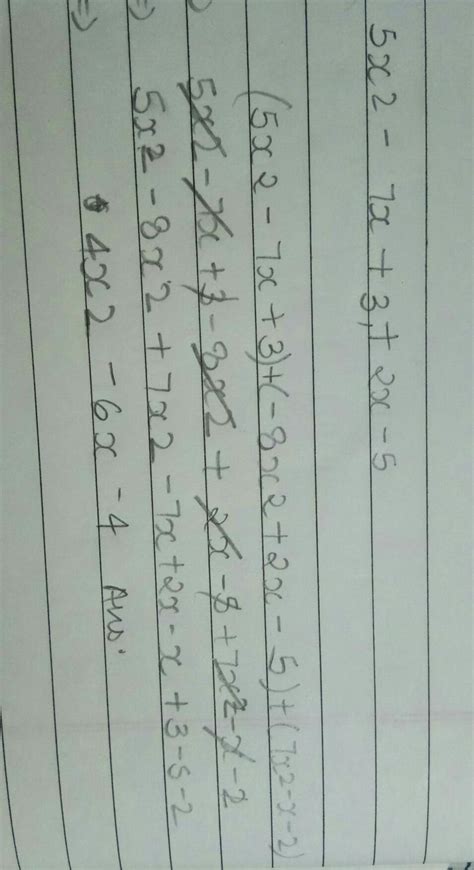 5x2 - 7x + 3, + 2x - 5
(5x2 - 7x + 3) + (-8x2 + 2x - 5) + (7x2 - x - 2)
5x2 - 7x + 3 - 8x2 + 2x - 8 + 7x2 - x - 2
⇒ 5x2 - 8x2 + 7x2 - 7x + 2x - x + 3 - 5 - 2
⇒ 4x2 - 6x - 4 Ans.